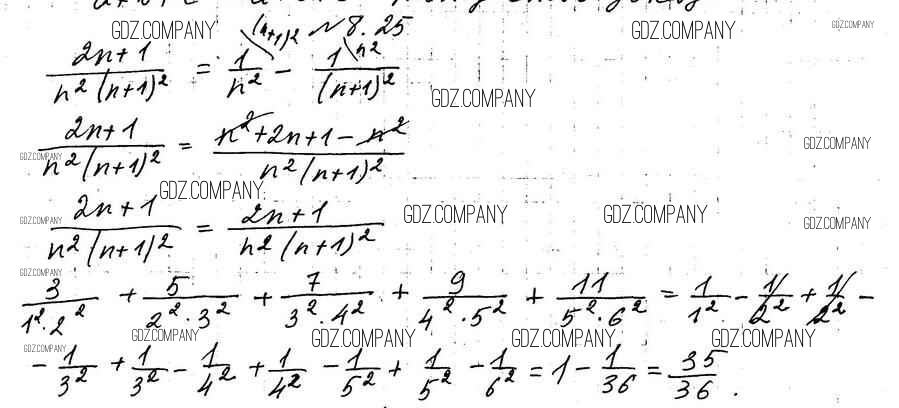 GDZ.COMPANY GDZ.COMPANY GDZ.COMPANY
№ 8.25
(2n+1)/(n²(n+1)²) = 1/n² \(n+1)² − 1/(n+1)² \n²
GDZ.COMPANY
(2n+1)/(n²(n+1)²) = (n²+2n+1−n²)/(n²(n+1)²)
GDZ.COMPANY GDZ.COMPANY
GDZ.COMPANY
(2n+1)/(n²(n+1)²) = (2n+1)/(n²(n+1)²)
GDZ.COMPANY GDZ.COMPANY GDZ.COMPANY GDZ.COMPANY
GDZ.COMPANY
3/(1²·2²) + 5/(2²·3²) + 7/(3²·4²) + 9/(4²·5²) + 11/(5²·6²) = 1/1² − 1/2² + 1/2² −
GDZ.COMPANY GDZ.COMPANY GDZ.COMPANY GDZ.COMPANY GDZ.COMPANY
− 1/3² + 1/3² − 1/4² + 1/4² − 1/5² + 1/5² − 1/6² = 1 − 1/36 = 35/36.